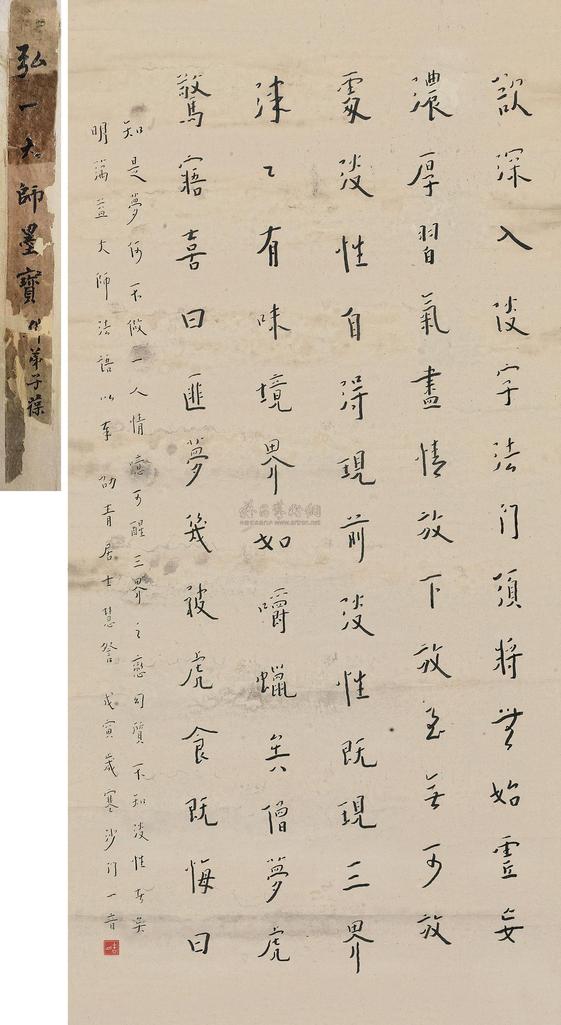 欲深入淡字法门須將無始虛妄
濃厚習氣盡情放下放至無可放
處淡性自得現前淡性既現三界
津々有味境界如嚼蠟矣僧夢虎
驚寤喜曰匪夢幾被虎食既悔曰
知是夢何不做一人情可醒三界之戀質不知淡性者矣
明蕅益大師法語以奉 劭青居士慧詧 戊寅歲寒沙门一音
弘一大師墨寶 弟子葆
www.artron.net